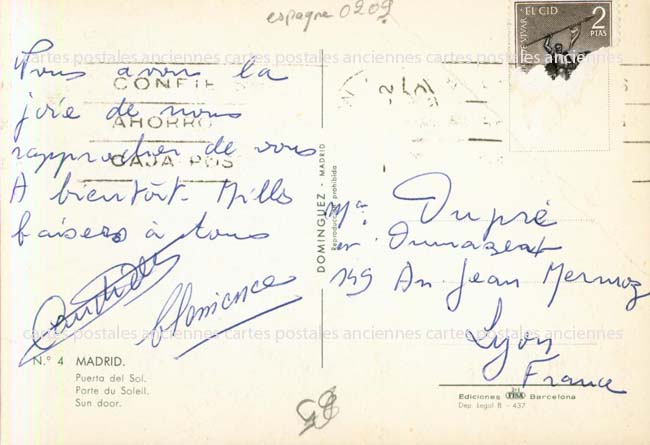 espagne 0209
EL CID
VIVAR
2
PTAS
cartes postales anciennes cartes postales anciennes cartes postales anciennes
Nous avons la
joie de nous
rapprocher de vous
A bientôt. Mille
baisers à tous
CONFIE
AHORRO
CAJA POS
DOMINGUEZ - MADRID
Reproduccion prohibida
Dupré
149 Av. Jean Mermoz
Lyon
France
cartes postales anciennes cartes postales anciennes cartes postales anciennes
N.° 4 MADRID.
Puerta del Sol.
Porte du Soleil.
Sun door.
Ediciones FISA Barcelona
Dep. Legal B - 437